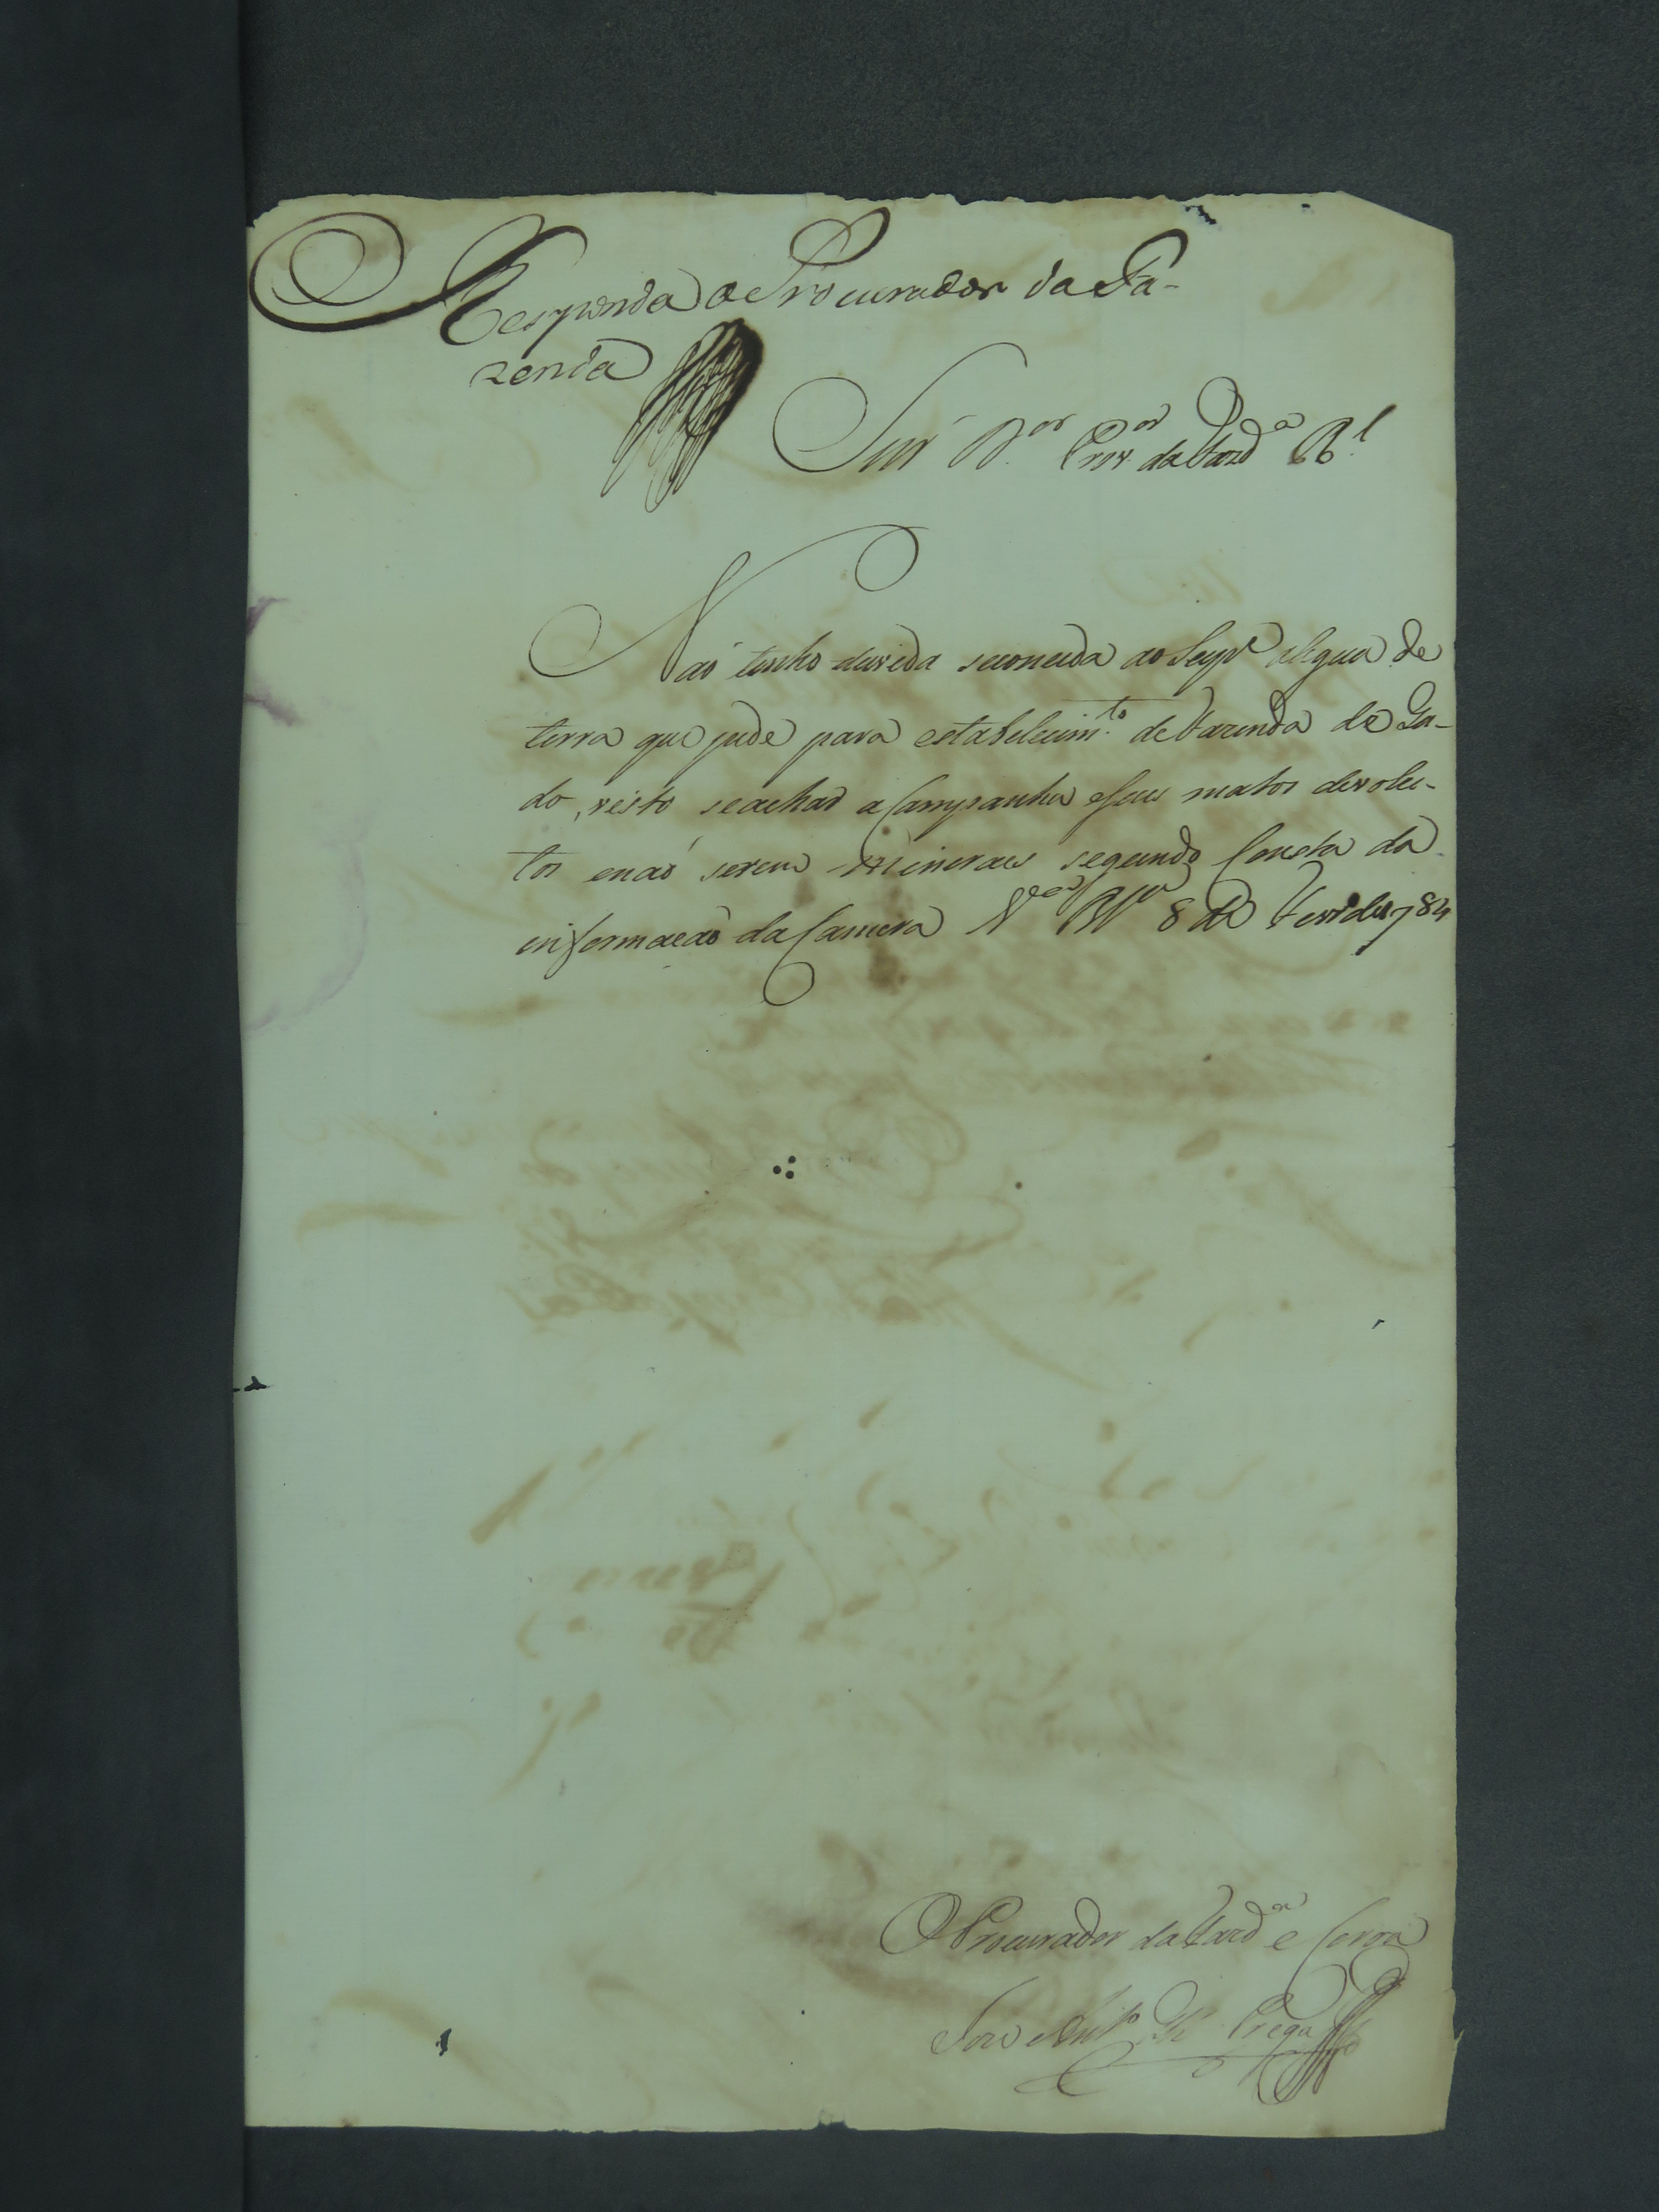 Responda o Procurador da Fa-
zenda
Snr. D.or Prov.or da Fazd.a R.l
Naõ tenho duvida seconceda ao Supp.e alegua de
terra que pede para estabelecim.to defazenda de Ga-
do, visto seachar a Campanha eseus matos devolu-
tos enaõ serem mineraes segundo Consta da
informaçaõ da Camera V.a 8 de Fevr.o de 1784
O Procurador da Fazd.a e Coroa
Joze Ant.o